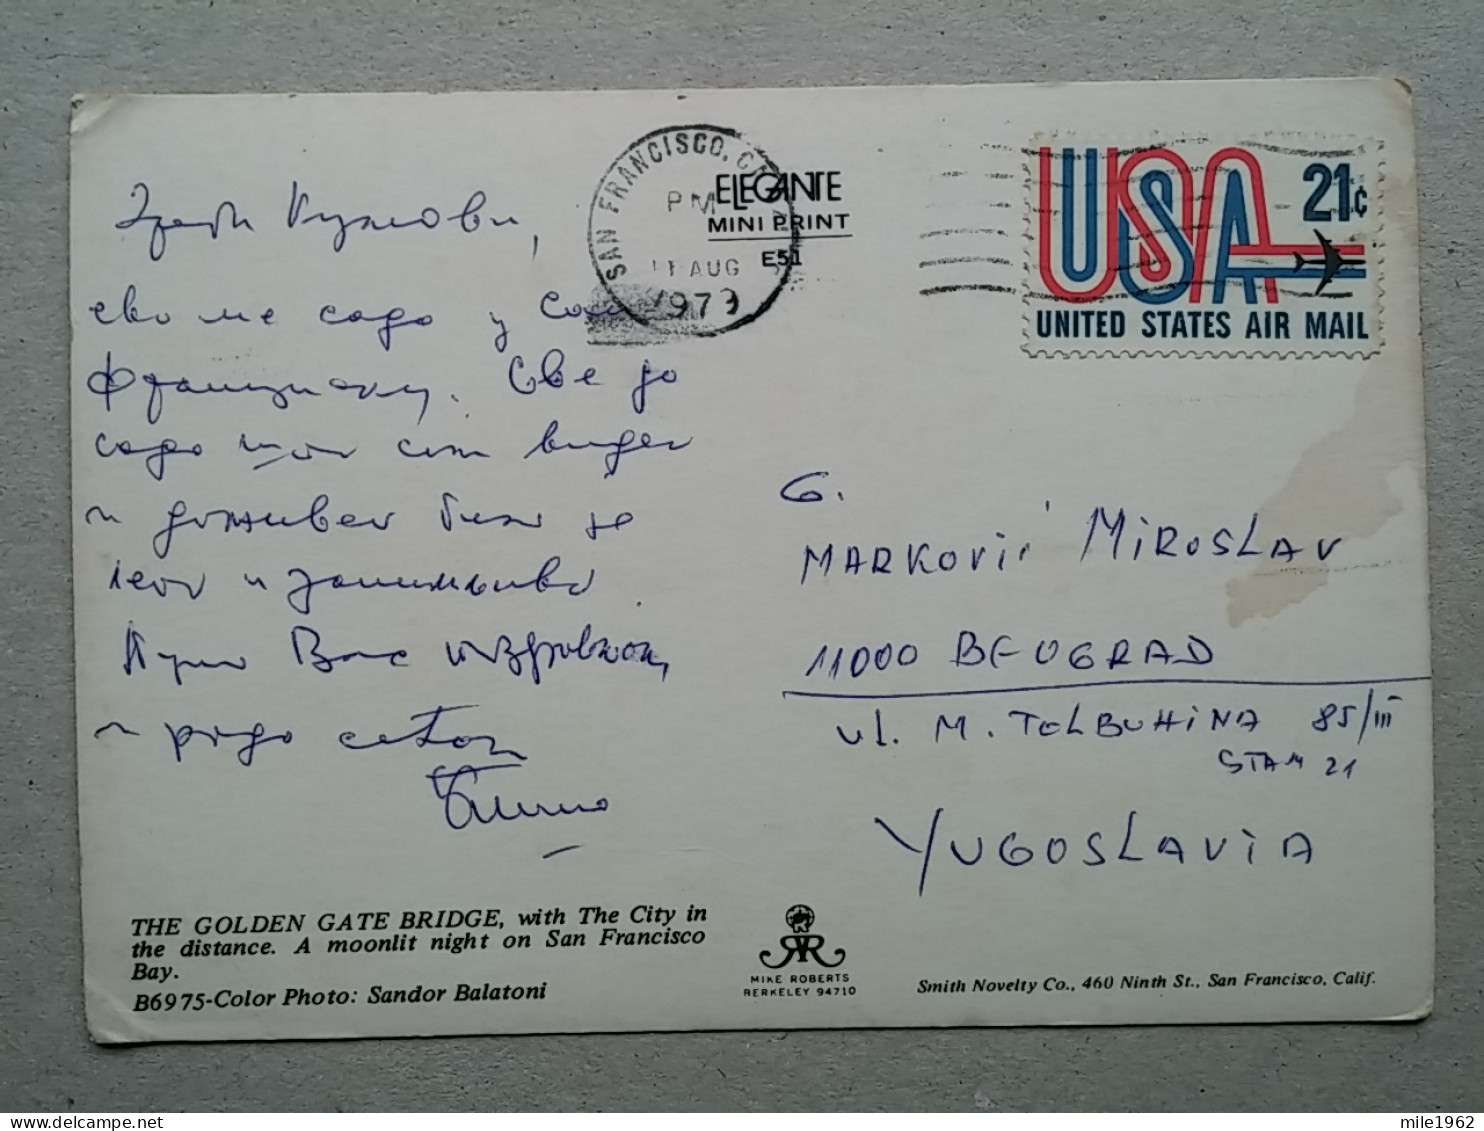 Драги Кумови,
ево ме сада у Сан
Франциску. Све до
сада што сам видео
и доживео било је
лепо и занимљиво
Пуно Вас поздрављам,
и
SAN FRANCISCO, CA
PM
11 AUG
1973
ELEGANTE
MINI PRINT
E51
USA 21¢
UNITED STATES AIR MAIL
G.
MARKOVIĆ MIROSLAV
11000 BEOGRAD
ul. M. TOLBUHINA 85/III
STAN 21
YUGOSLAVIA
THE GOLDEN GATE BRIDGE, with The City in
the distance. A moonlit night on San Francisco
Bay.
B6975-Color Photo: Sandor Balatoni
MIKE ROBERTS
BERKELEY 94710
Smith Novelty Co., 460 Ninth St., San Francisco, Calif.
mile1962